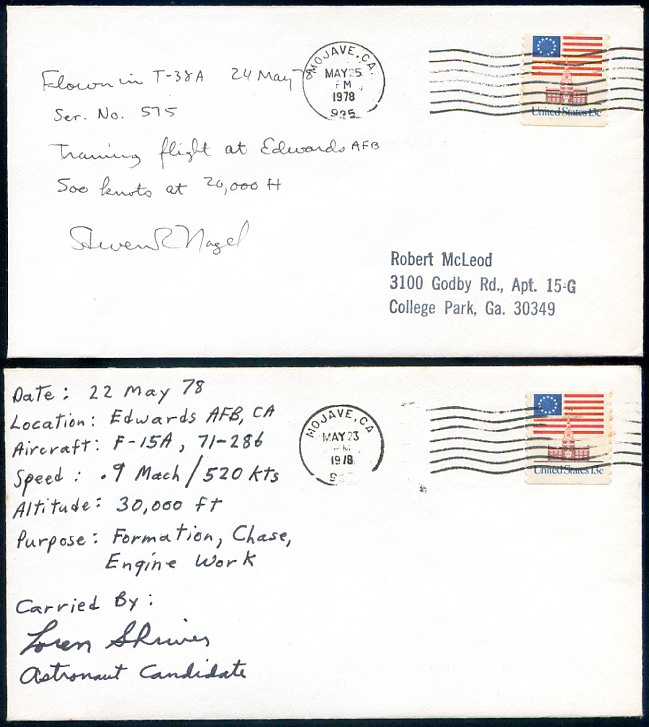 Flown in T-38A 24 May 78
Ser. No. 575
Training flight at Edwards AFB
500 knots at 20,000 ft
Steven R Nagel
MOJAVE, CA.
MAY 25
PM
1978
935
United States 13c
Robert McLeod
3100 Godby Rd., Apt. 15-G
College Park, Ga. 30349
Date: 22 May 78
Location: Edwards AFB, CA
Aircraft: F-15A, 71-286
Speed: .9 Mach/520 kts
Altitude: 30,000 ft
Purpose: Formation, Chase,
Engine Work
Carried By:
Loren Shriver
Astronaut Candidate
MOJAVE, CA
MAY 23
PM
1978
United States 13c